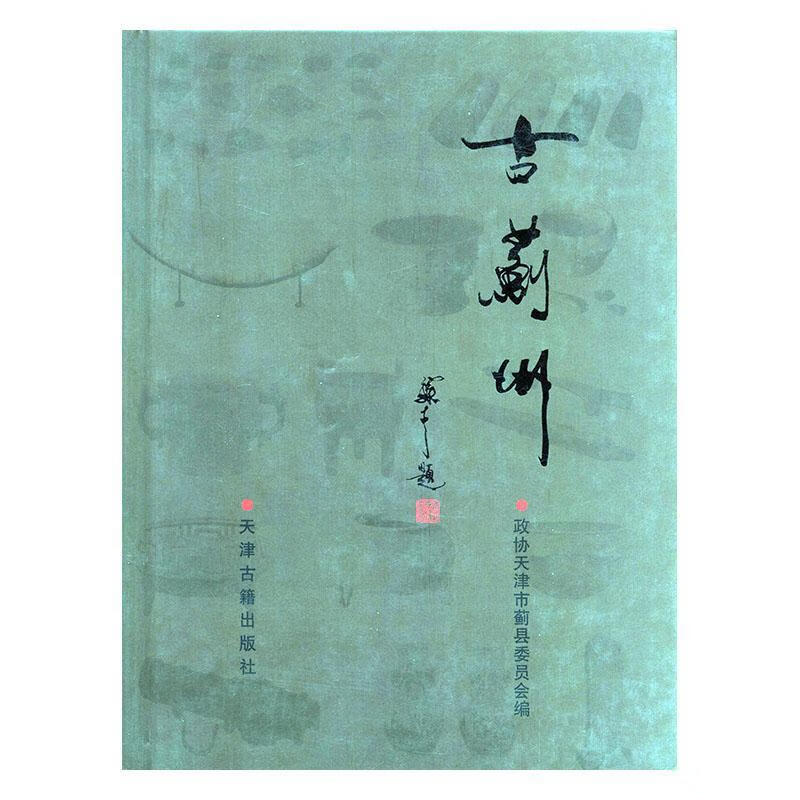 古薊州
政协天津市蓟县委员会编
題
天津古籍出版社